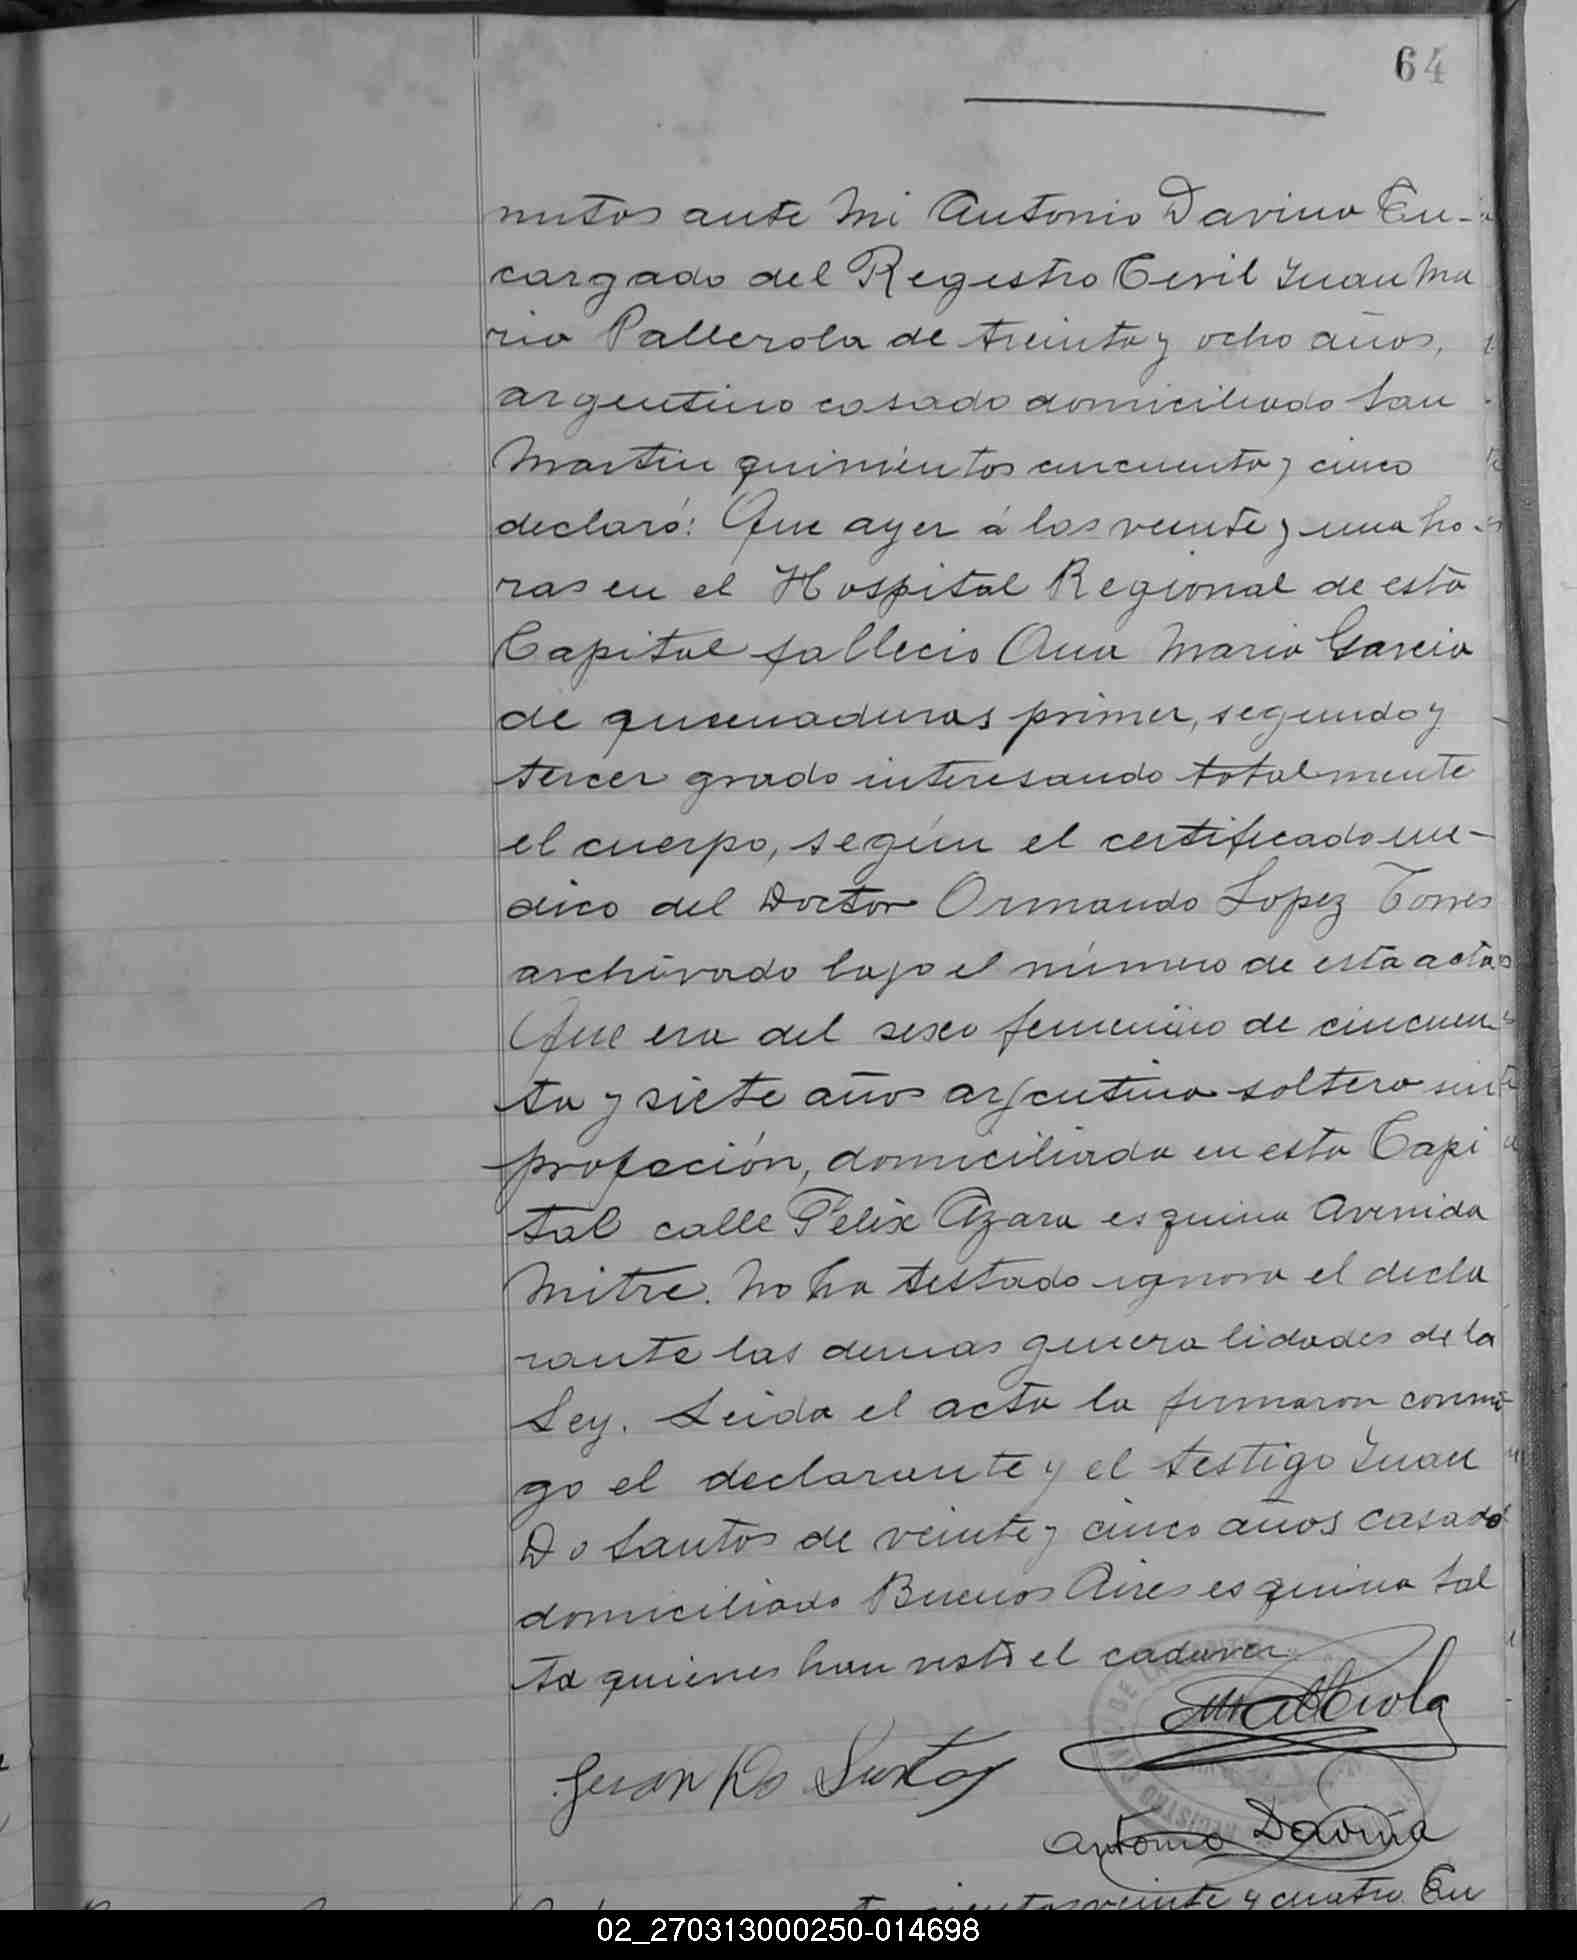 64
nutos ante mi Antonio Davina En-
cargado del Registro Cevil Juan Ma
ria Pallerola de treinta y ocho años,
argentino casado domiciliado San
Martin quinientos cincuenta y cinco
declaró: Que ayer á las veinte y una ho-
ras en el Hospital Regional de esta
Capital fallecio Ana Maria Garcia
de quemaduras primer, segundo y
tercer grado interesando totalmente
el cuerpo, según el certificado me-
dico del Doctor Ormando Lopez Torres
archivado bajo el número de esta acta
Que era del sexo femenino de cincuen
ta y siete años argentina soltera sin
profeción, domiciliada en esta Capi
tal calle Felix Azara esquina Avenida
Mitre. No ha testado ignora el decla
rante las demas generalidades de la
Ley. Leida el acta la firmaron conmi-
go el declarante y el testigo Juan
Do Santos de veinte y cinco años casado
domiciliado Buenos Aires esquina Sal
ta quienes han visto el cadaver
Pallerola
Juan Do Santos
Antonio Davina
veinte y cuatro En
02_270313000250-014698